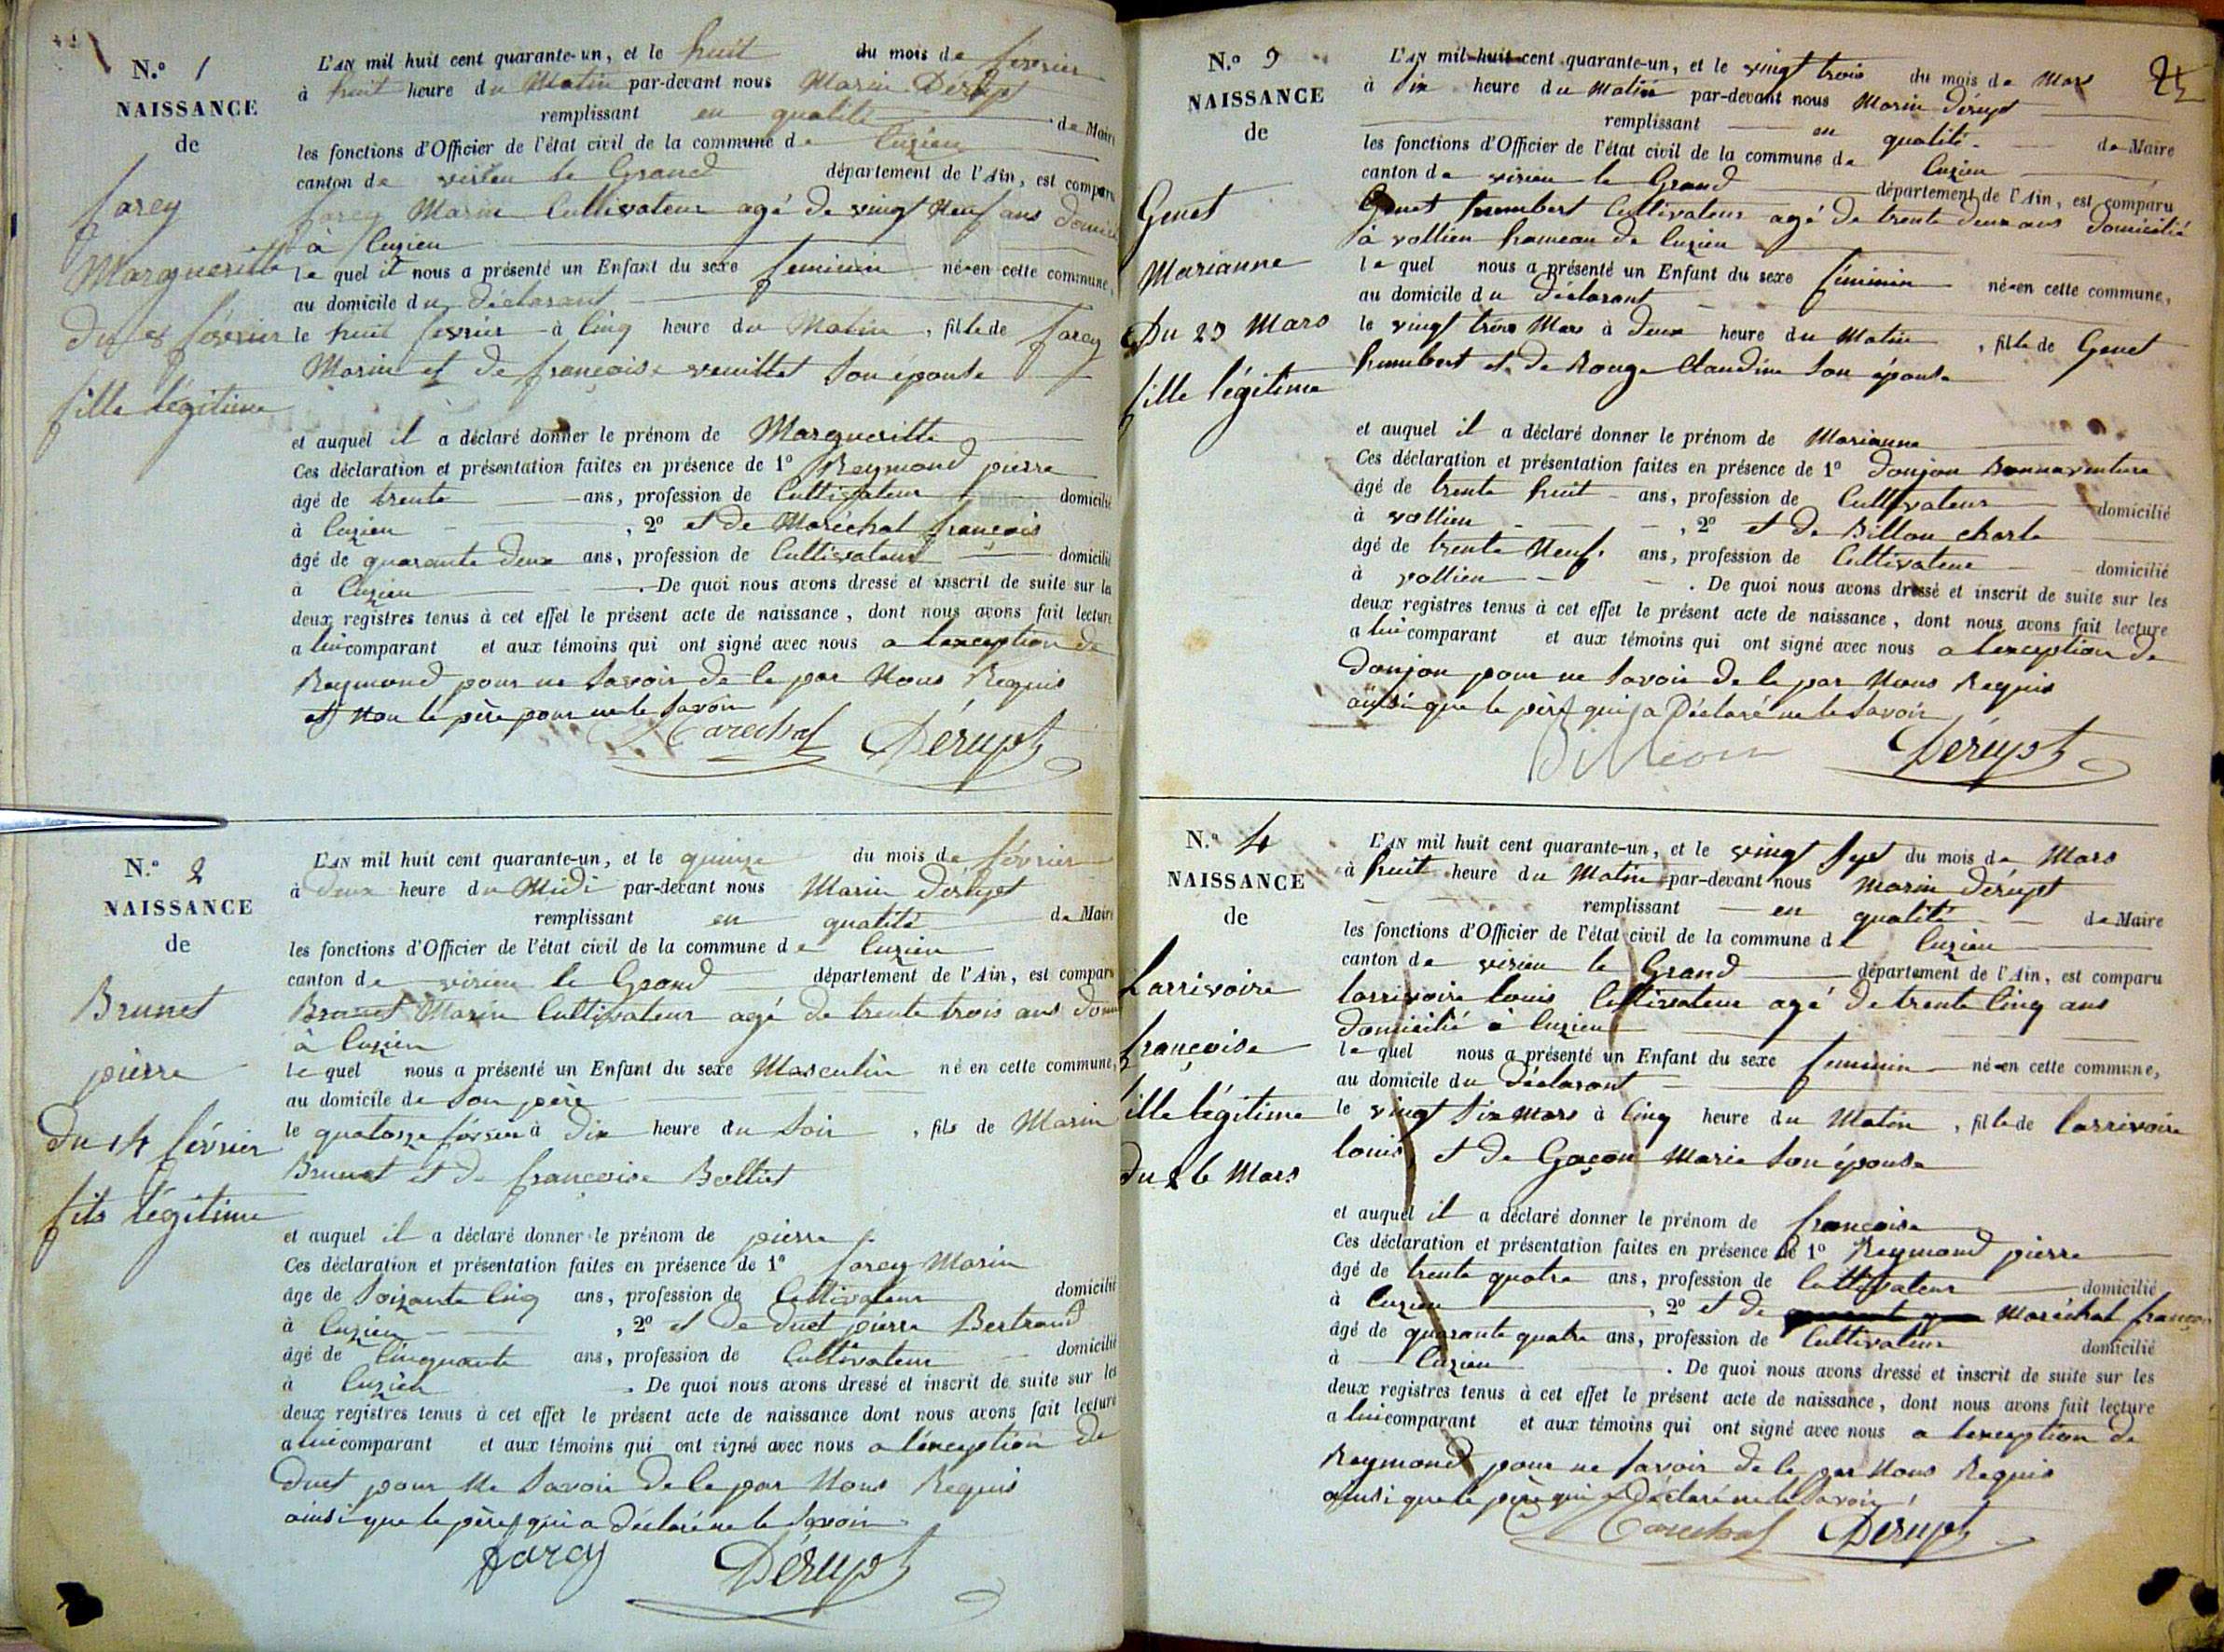 N.° 1
NAISSANCE
de
farcy
Margueritte
du 8 février
fille légitime
L'AN mil huit cent quarante-un, et le huit du mois de février
à huit heure du Matin par-devant nous Marin Dérupt
remplissant en qualité de Maire
les fonctions d'Officier de l'état civil de la commune de Cuzieu
canton de virieu le Grand département de l'Ain, est comparu
farcy Marin Cultivateur agé de vingt Neuf ans domicilié
à Cuzieu
le quel il nous a présenté un Enfant du sexe feminin né en cette commune,
au domicile du déclarant
le huit fevrier à Cinq heure du Matin, fille de farcy
Marin et de françoise veuillet Son épouse
et auquel il a déclaré donner le prénom de Margueritte
Ces déclaration et présentation faites en présence de 1° Reymond pierre
âgé de trente ans, profession de Cultivateur domicilié
à Cuzieu, 2° et de Maréchal françois
âgé de quarante deux ans, profession de Cultivateur domicilié
à Cuzieu. De quoi nous avons dressé et inscrit de suite sur les
deux registres tenus à cet effet le présent acte de naissance, dont nous avons fait lecture
a lui comparant et aux témoins qui ont signé avec nous a lexception de
Reymond pour ne Savoir de le par Nous Requis
et Non le père pour ne le Savoir
Marechal Dérupt
N.° 2
NAISSANCE
de
Brunet
pierre
du 14 février
fils légitime
L'AN mil huit cent quarante-un, et le quinze du mois de février
à deux heure du Midi par-devant nous Marin dérupt
remplissant en qualité de Maire
les fonctions d'Officier de l'état civil de la commune de Cuzieu
canton de virieu le Grand département de l'Ain, est comparu
Brunet Marin Cultivateur agé de trente trois ans
à Cuzieu
le quel nous a présenté un Enfant du sexe Masculin né en cette commune,
au domicile de Son père
le quatorze février à dix heure du Soir, fils de Marin
Brunet et de françoise
et auquel il a déclaré donner le prénom de pierre
Ces déclaration et présentation faites en présence de 1° farcy Marin
âge de Soixante Cinq ans, profession de Cultivateur domicilié
à Cuzieu, 2° et de duet pierre Bertrand
âgé de Cinquante ans, profession de Cultivateur domicilié
à Cuzieu. De quoi nous avons dressé et inscrit de suite sur les
deux registres tenus à cet effet le présent acte de naissance dont nous avons fait lecture
a lui comparant et aux témoins qui ont signé avec nous a l'exception de
duet pour Ne Savoir de le par Nous Requis
ainsi que le père qui a déclaré ne le Savoir
farcy Dérupt
24
N.° 3
NAISSANCE
de
Genet
Marianne
Du 23 Mars
fille légitime
L'AN mil huit cent quarante-un, et le vingt trois du mois de Mars
à Six heure du Matin par-devant nous Marin dérupt
remplissant en qualité de Maire
les fonctions d'Officier de l'état civil de la commune de Cuzieu
canton de virieu le Grand département de l'Ain, est comparu
Genet humbert Cultivateur agé de trente deux ans domicilié
à vollien hameau de Cuzieu
le quel nous a présenté un Enfant du sexe féminin né en cette commune,
au domicile du déclarant
le vingt trois Mars à deux heure du Matin, fille de Genet
humbert et de Rouge Claudine Son épouse
et auquel il a déclaré donner le prénom de Marianne
Ces déclaration et présentation faites en présence de 1° donjon Bonnaventure
âgé de trente huit ans, profession de Cultivateur domicilié
à vollien, 2° et de Billon charle
âgé de trente Neuf ans, profession de Cultivateur domicilié
à vollien. De quoi nous avons dressé et inscrit de suite sur les
deux registres tenus à cet effet le présent acte de naissance, dont nous avons fait lecture
a lui comparant et aux témoins qui ont signé avec nous a lexception de
donjon pour ne Savoir de le par Nous Requis
ainsi que le père qui a Déclaré ne le Savoir
Billion Dérupt
N.° 4
NAISSANCE
de
Larrivoire
françoise
fille légitime
du 26 Mars
L'AN mil huit cent quarante-un, et le vingt Sept du mois de Mars
à huit heure du Matin par-devant nous Marin Dérupt
remplissant en qualité de Maire
les fonctions d'Officier de l'état civil de la commune de Cuzieu
canton de virieu le Grand département de l'Ain, est comparu
larrivoire louis Cultivateur agé de trente Cinq ans
domicilié à Cuzieu
le quel nous a présenté un Enfant du sexe feminin né en cette commune,
au domicile du déclarant
le vingt Six Mars à Cinq heure du Matin, fille de larrivoire
louis et de Gaçon Marie Son épouse
et auquel il a déclaré donner le prénom de françoise
Ces déclaration et présentation faites en présence de 1° Reymond pierre
âgé de trente quatre ans, profession de Cultivateur domicilié
à Cuzieu, 2° et de Maréchal françois
âgé de quarante quatre ans, profession de Cultivateur domicilié
à Cuzieu. De quoi nous avons dressé et inscrit de suite sur les
deux registres tenus à cet effet le présent acte de naissance, dont nous avons fait lecture
a lui comparant et aux témoins qui ont signé avec nous a lexception de
Reymond pour ne Savoir de le par Nous Requis
ainsi que le père qui a Déclaré ne le Savoir
Marechal Dérupt